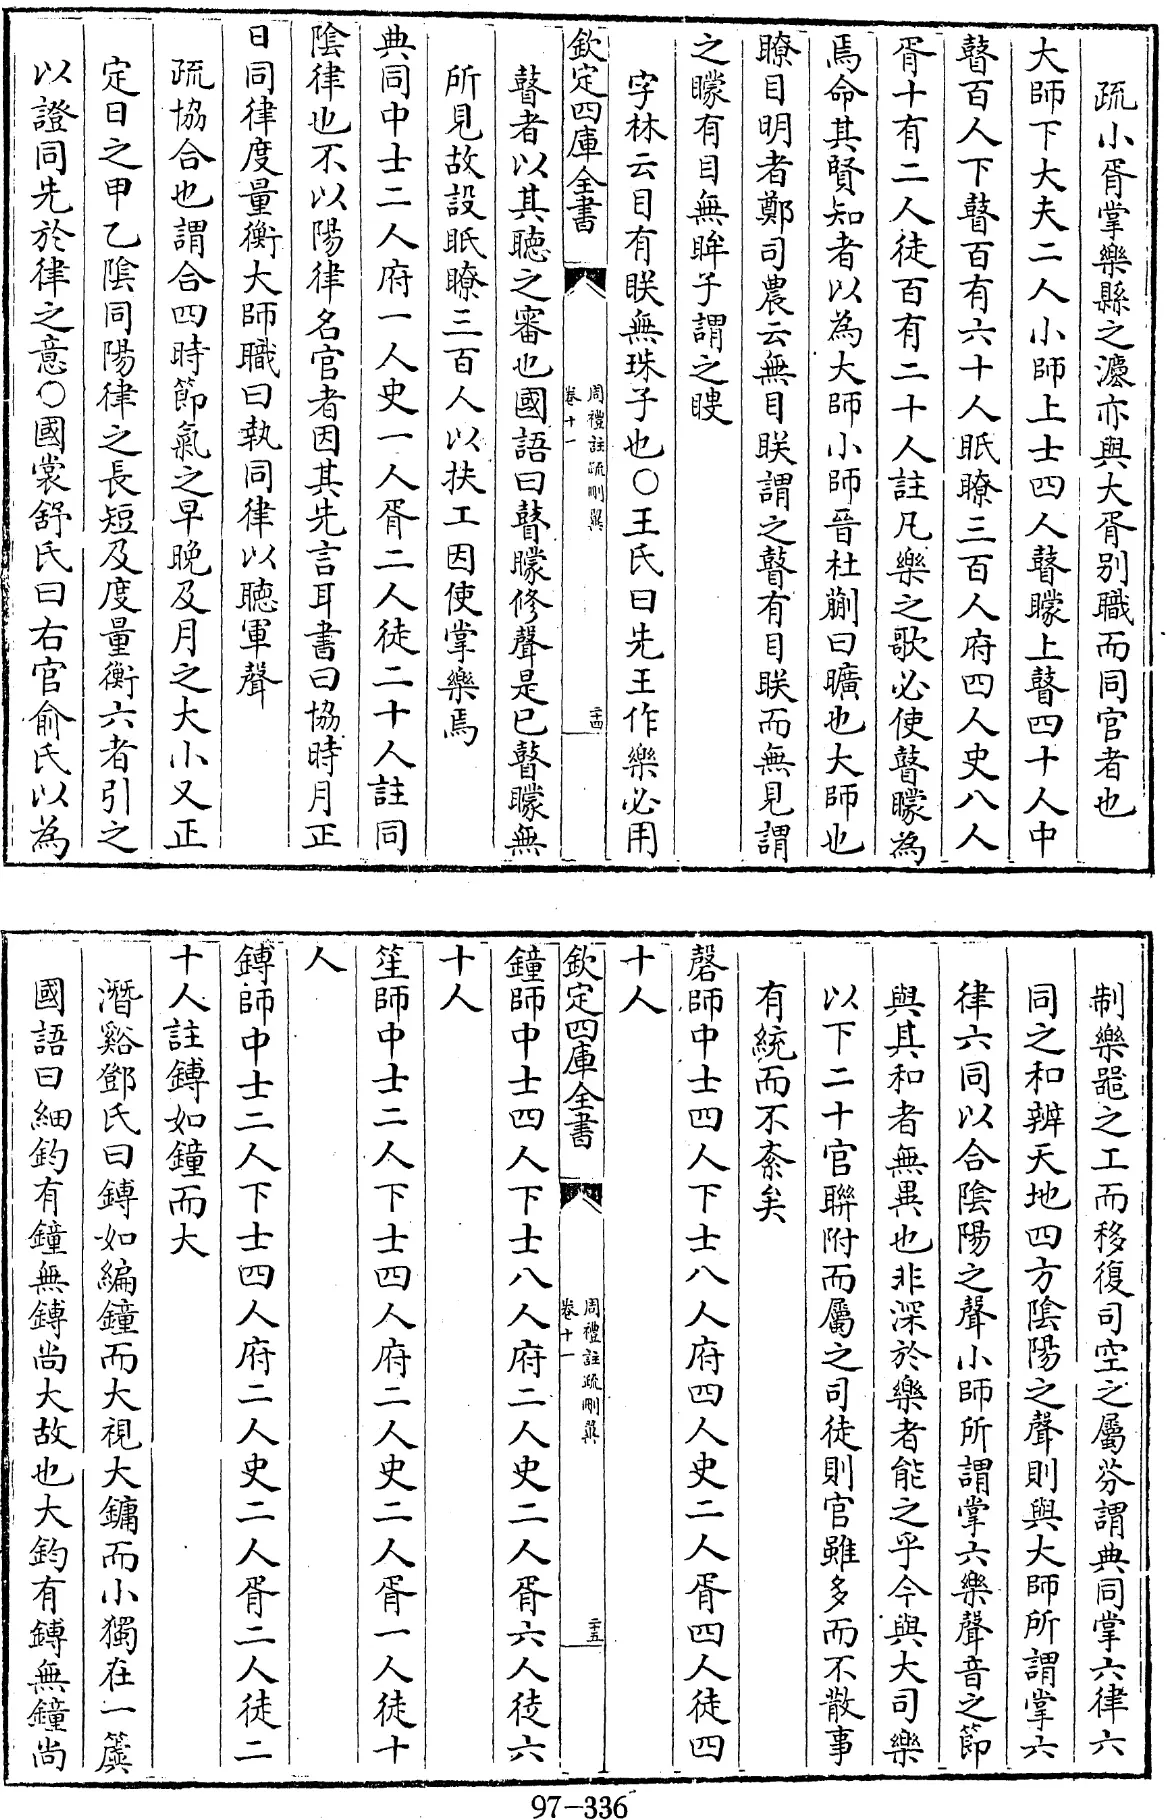 疏小胥掌樂縣之灋亦與大胥别職而同官者也
大師下大夫二人小師上士四人瞽矇上瞽四十人中
瞽百人下瞽百有六十人眡瞭三百人府四人史八人
胥十有二人徒百有二十人註凡樂之歌必使瞽矇為
焉命其賢知者以為大師小師晉杜蒯曰曠也大師也
瞭目明者鄭司農云無目眹謂之瞽有目眹而無見謂
之矇有目無眸子謂之瞍
字林云目有眹無珠子也〇王氏曰先王作樂必用
欽定四庫全書
周禮註疏刪翼
卷十一
二十四
瞽者以其聴之審也國語曰瞽矇修聲是已瞽矇無
所見故設眡瞭三百人以扶工因使掌樂焉
典同中士二人府一人史一人胥二人徒二十人註同
陰律也不以陽律名官者因其先言耳書曰協時月正
日同律度量衡大師職曰執同律以聴軍聲
疏協合也謂合四時節氣之早晚及月之大小又正
定日之甲乙陰同陽律之長短及度量衡六者引之
以證同先於律之意〇國裳舒氏曰右官俞氏以為
制樂噐之工而移復司空之屬芬謂典同掌六律六
同之和辨天地四方陰陽之聲則與大師所謂掌六
律六同以合陰陽之聲小師所謂掌六樂聲音之節
與其和者無異也非深於樂者能之乎今與大司樂
以下二十官聯附而屬之司徒則官雖多而不散事
有統而不紊矣
磬師中士四人下士八人府四人史二人胥四人徒四
十人
欽定四庫全書
周禮註疏刪翼
卷十一
二十五
鐘師中士四人下士八人府二人史二人胥六人徒六
十人
笙師中士二人下士四人府二人史二人胥一人徒十
人
鎛師中士二人下士四人府二人史二人胥二人徒二
十人註鎛如鐘而大
潛谿鄧氏曰鎛如編鐘而大視大鏞而小獨在一簴
國語曰細鈞有鐘無鎛尚大故也大鈞有鎛無鐘尚
97-336